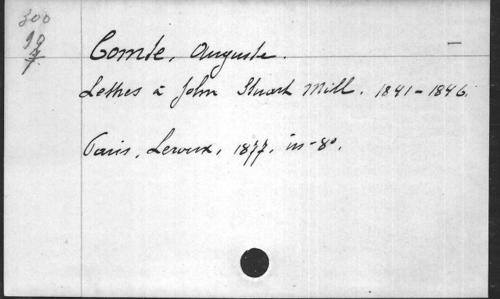 300
Comte, Auguste.
Lettres à John Stuart Mill. 1841-1846.
Paris, Leroux, 1877. in-8o.